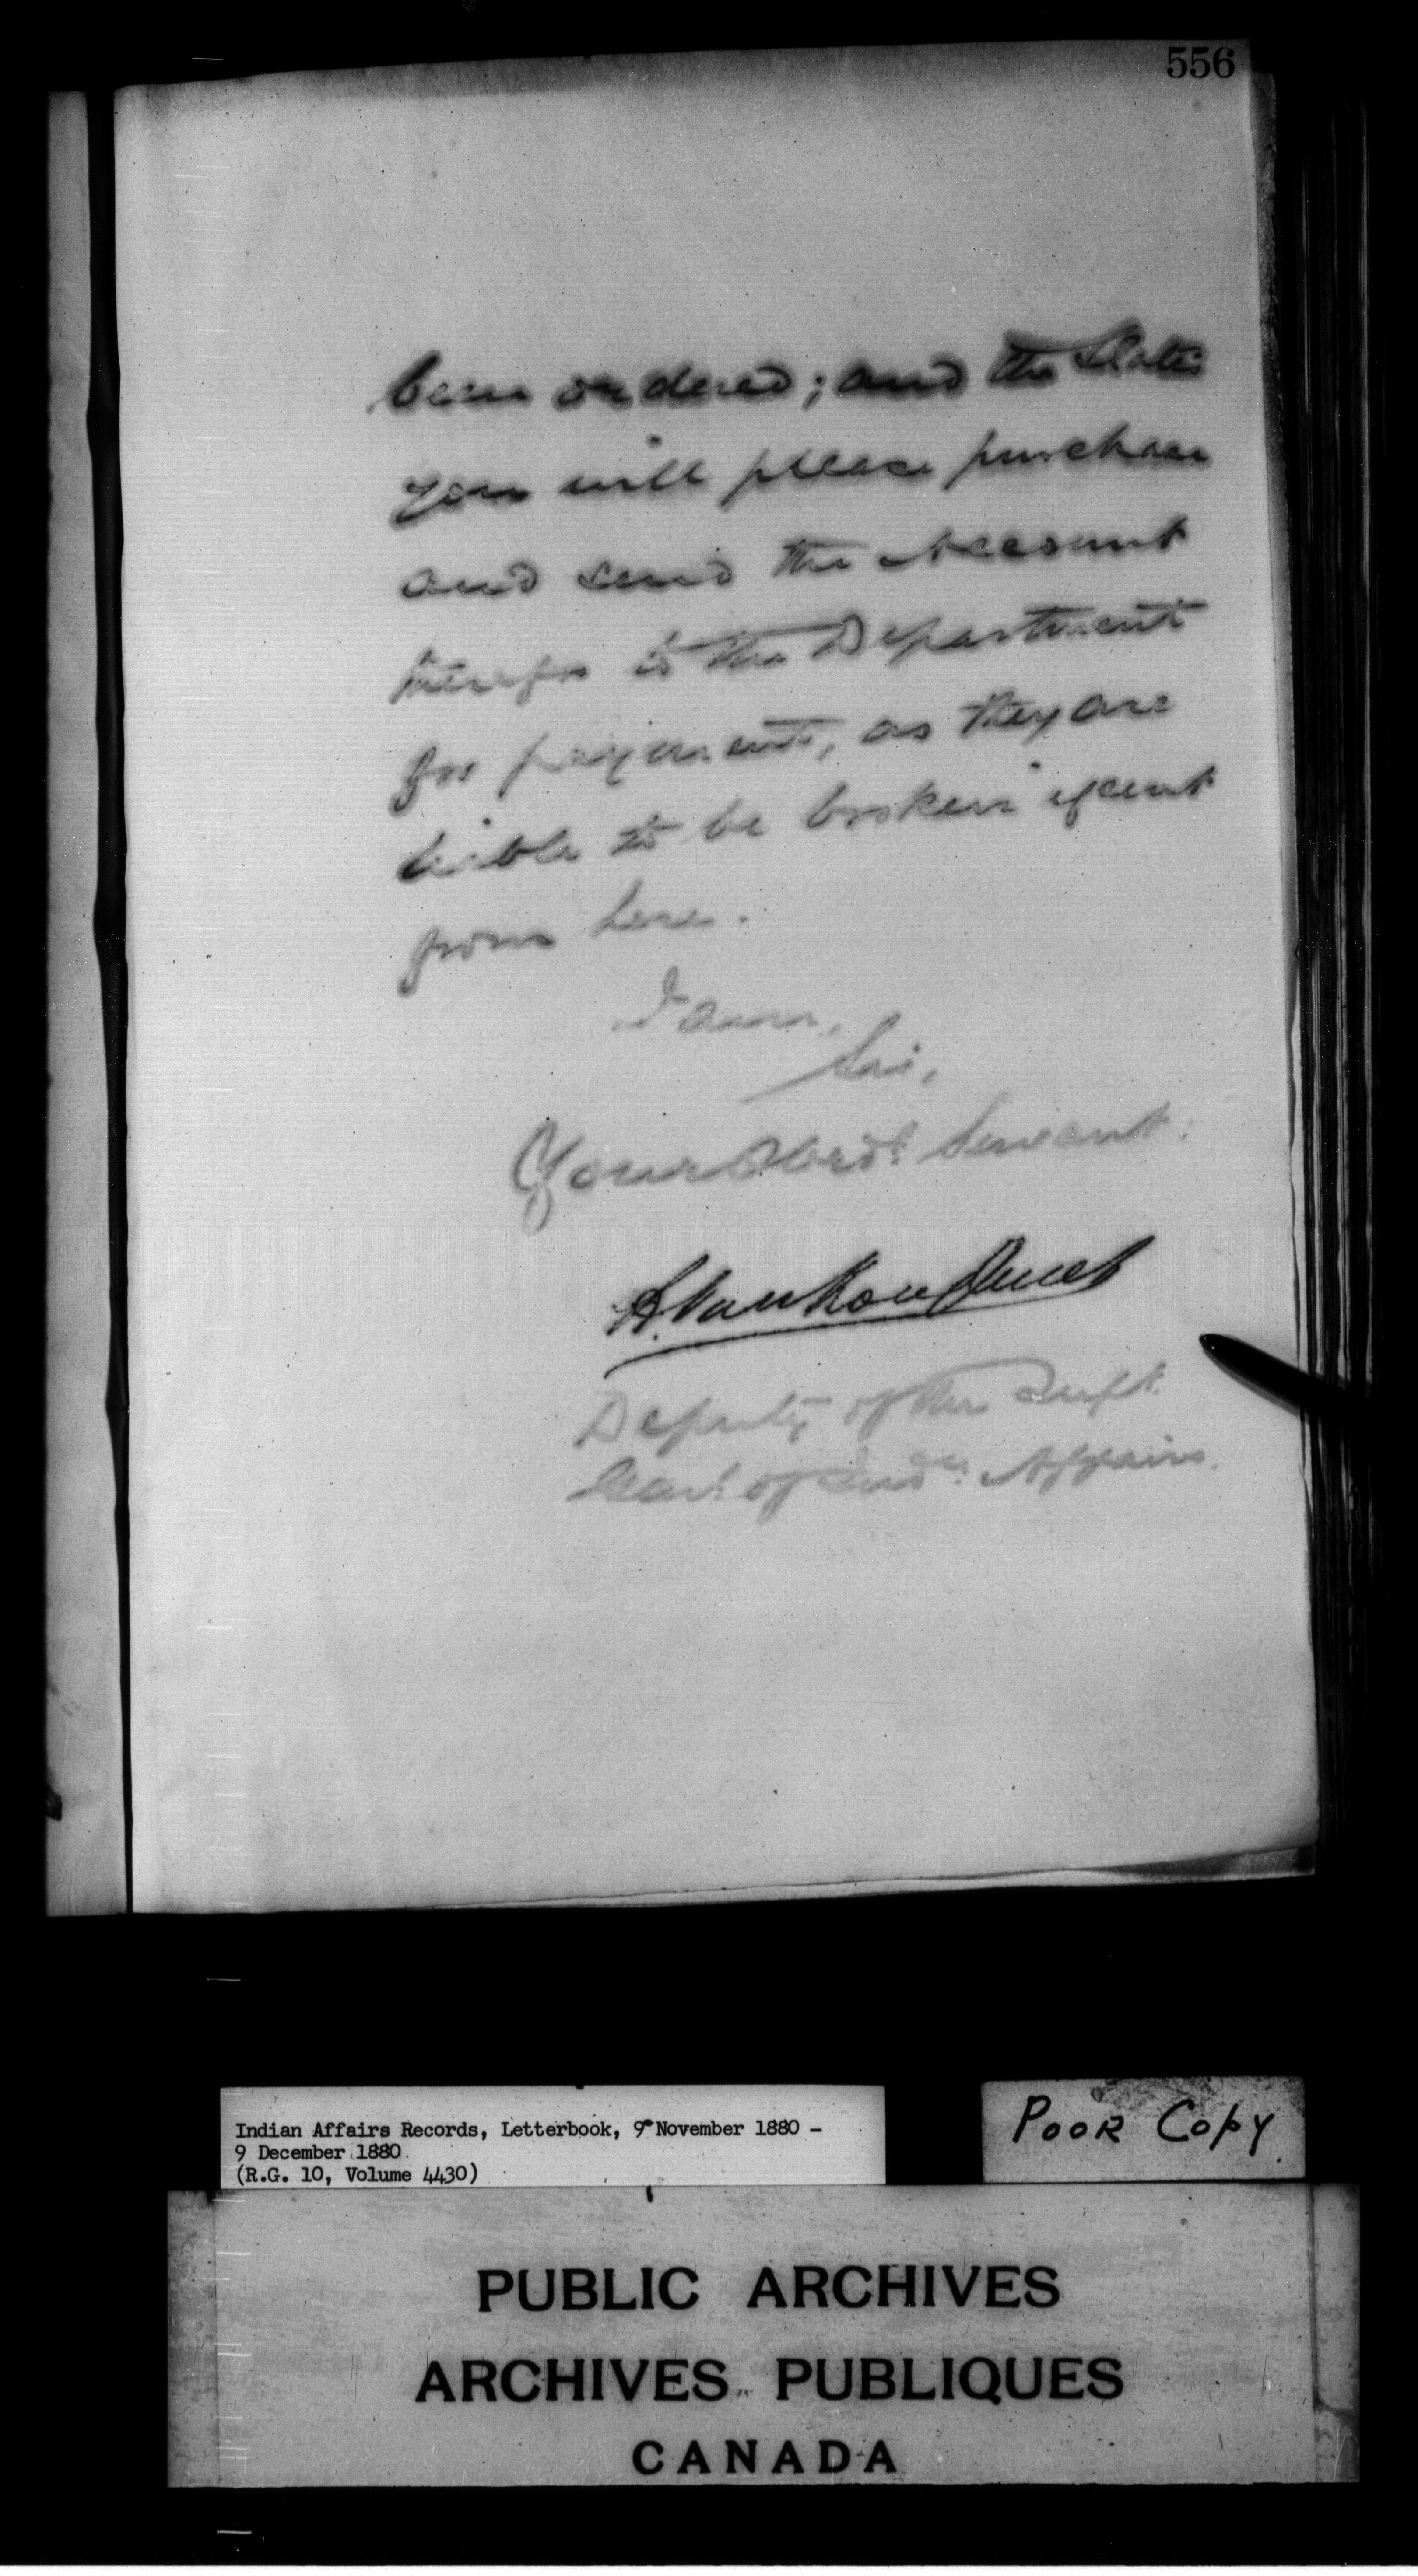 556
been ordered; and the Slates
you will please purchase
and send the Account
therefor to the Department
for payment, as they are
liable to be broken if sent
from here.
I am,
Sir,
Your Obedt. Servant.
L. VanKoughnet
Deputy of the Supt.
Genl. of Indn. Affairs.
Indian Affairs Records, Letterbook, 9 November 1880 -
9 December 1880
(R.G. 10, Volume 4430)
POOR COPY
PUBLIC ARCHIVES
ARCHIVES PUBLIQUES
CANADA